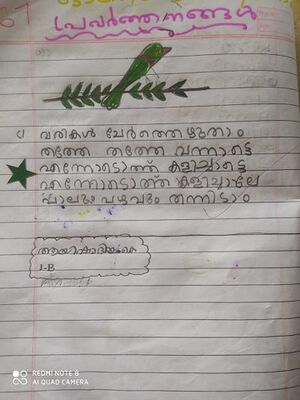 പ്രവർത്തനങ്ങൾ
വരികൾ ചേർത്തെഴുതാം
തത്തേ തത്തേ വന്നാട്ടെ
എന്നോടൊത്ത് കളിച്ചാട്ടെ
എന്നോടൊത്ത് കളിച്ചാലോ
പാലും പഴവും തന്നിടാം
1-B
REDMI NOTE 8
AI QUAD CAMERA